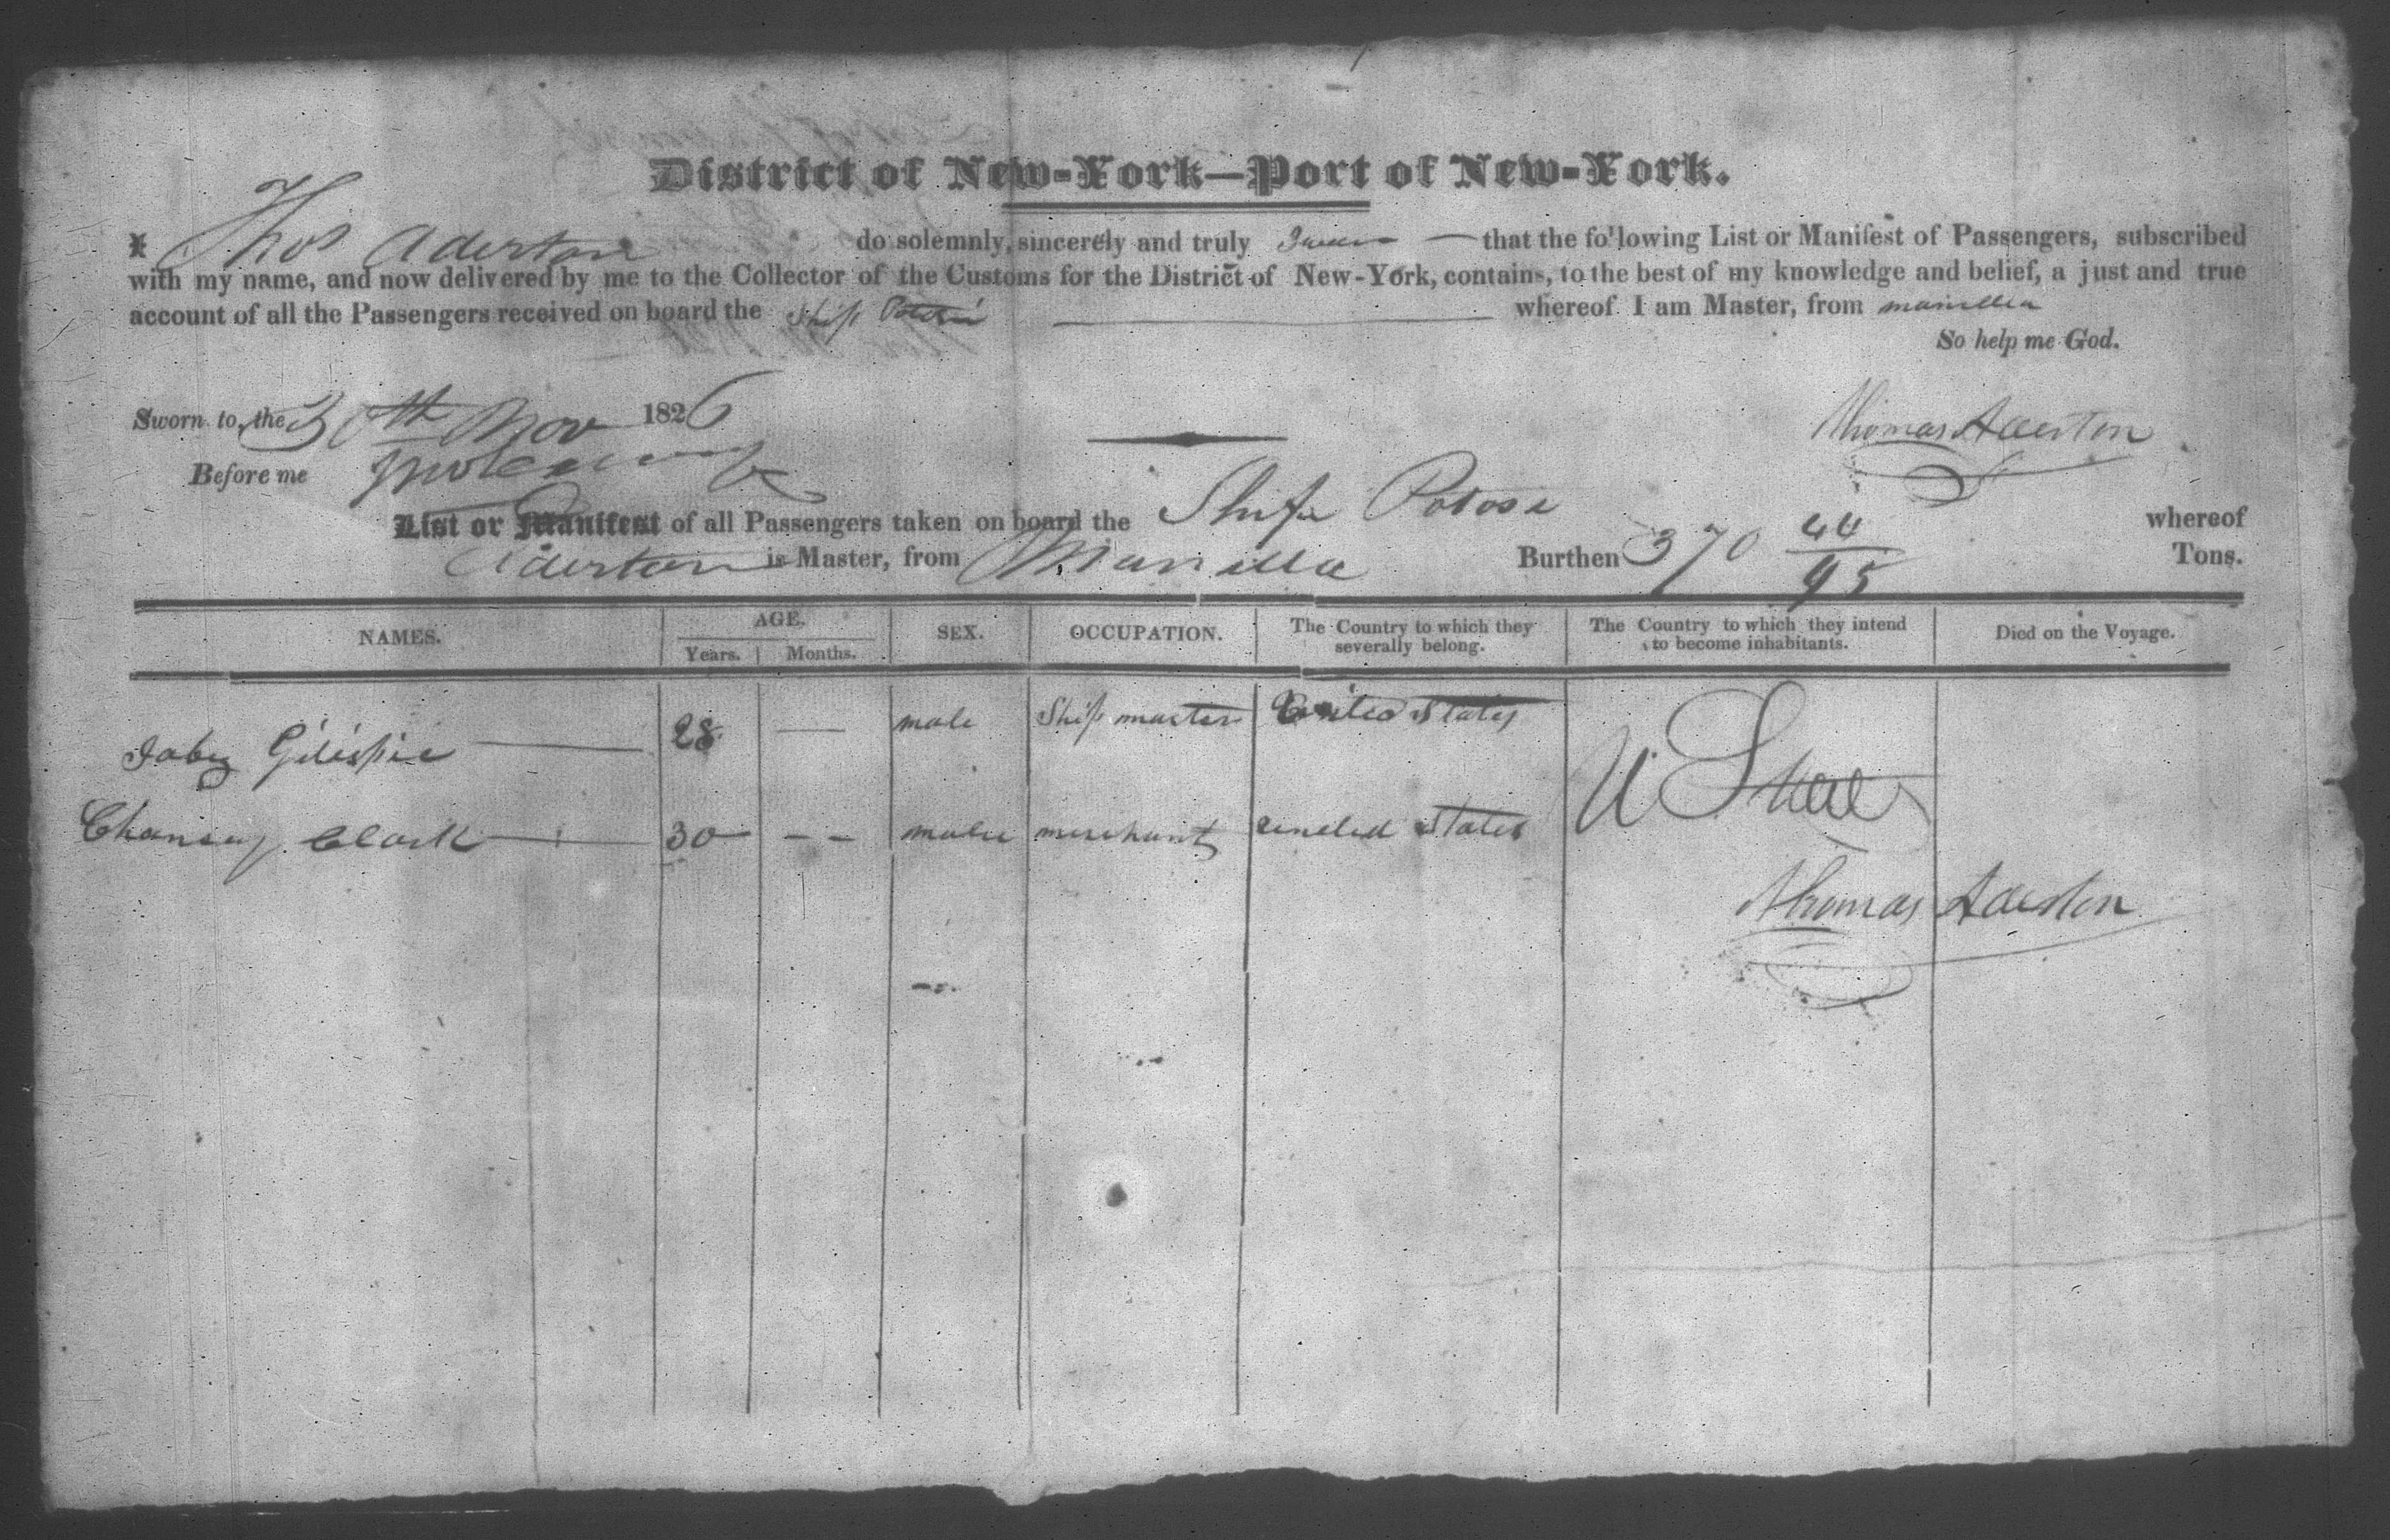 District of New-York—Port of New-York.
I Thos Aderton do solemnly, sincerely and truly Swear — that the following List or Manifest of Passengers, subscribed
with my name, and now delivered by me to the Collector of the Customs for the District of New-York, contains, to the best of my knowledge and belief, a just and true
account of all the Passengers received on board the Ship Potosi whereof I am Master, from manilla
So help me God.
Sworn to, the 30th Nov 1826
Thomas Aderton
Before me
List or Manifest of all Passengers taken on board the Ship Potosi whereof
Aderton is Master, from Manilla Burthen 370 44/95 Tons.
NAMES. AGE. SEX. OCCUPATION. The Country to which they severally belong. The Country to which they intend to become inhabitants. Died on the Voyage.
Years. Months.
Jabez Gilespie 28 — male Ship master United States
U State
Chansey Clark 30 - - male merchant united states
Thomas Aderton